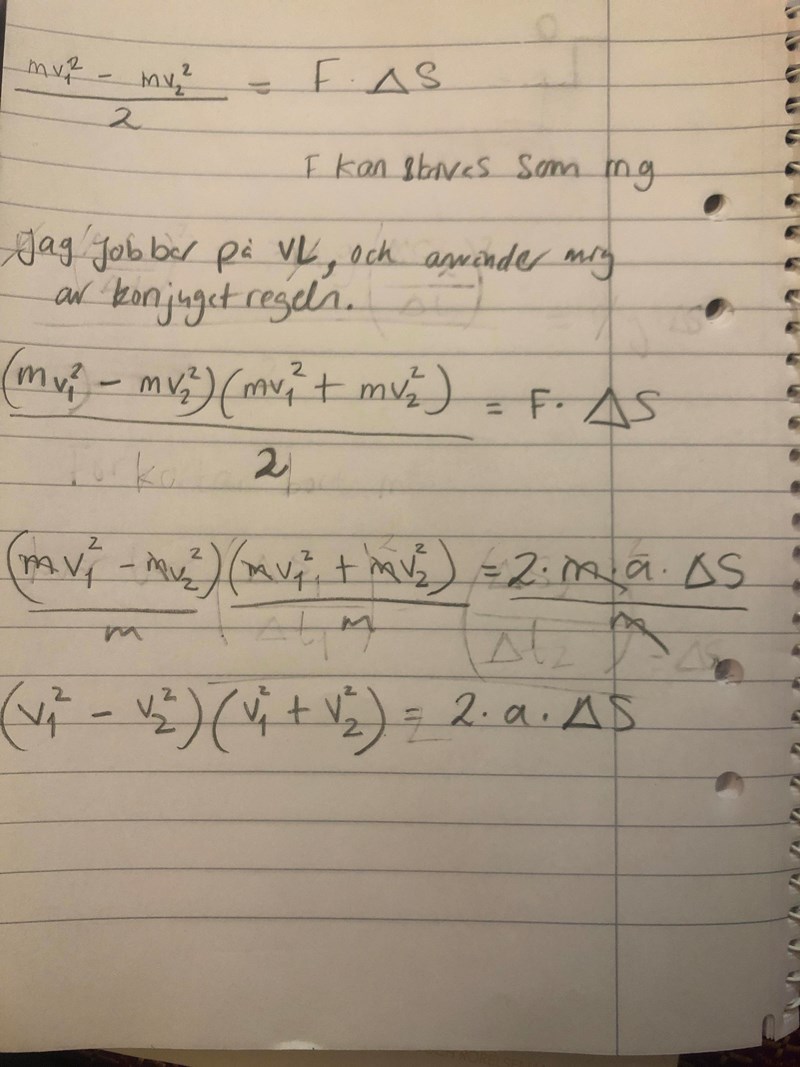 (mv₁² - mv₂²)/2 = F · ΔS
F kan skrives som mg
Jag jobber på VL, och använder mig
av konjuget regeln.
(mv₁² - mv₂²)(mv₁² + mv₂²)/2 = F · ΔS
(mv₁² - mv₂²)/m (mv₁² + mv₂²)/m = 2·m·a·ΔS/m
(v₁² - v₂²)(v₁² + v₂²) = 2·a·ΔS